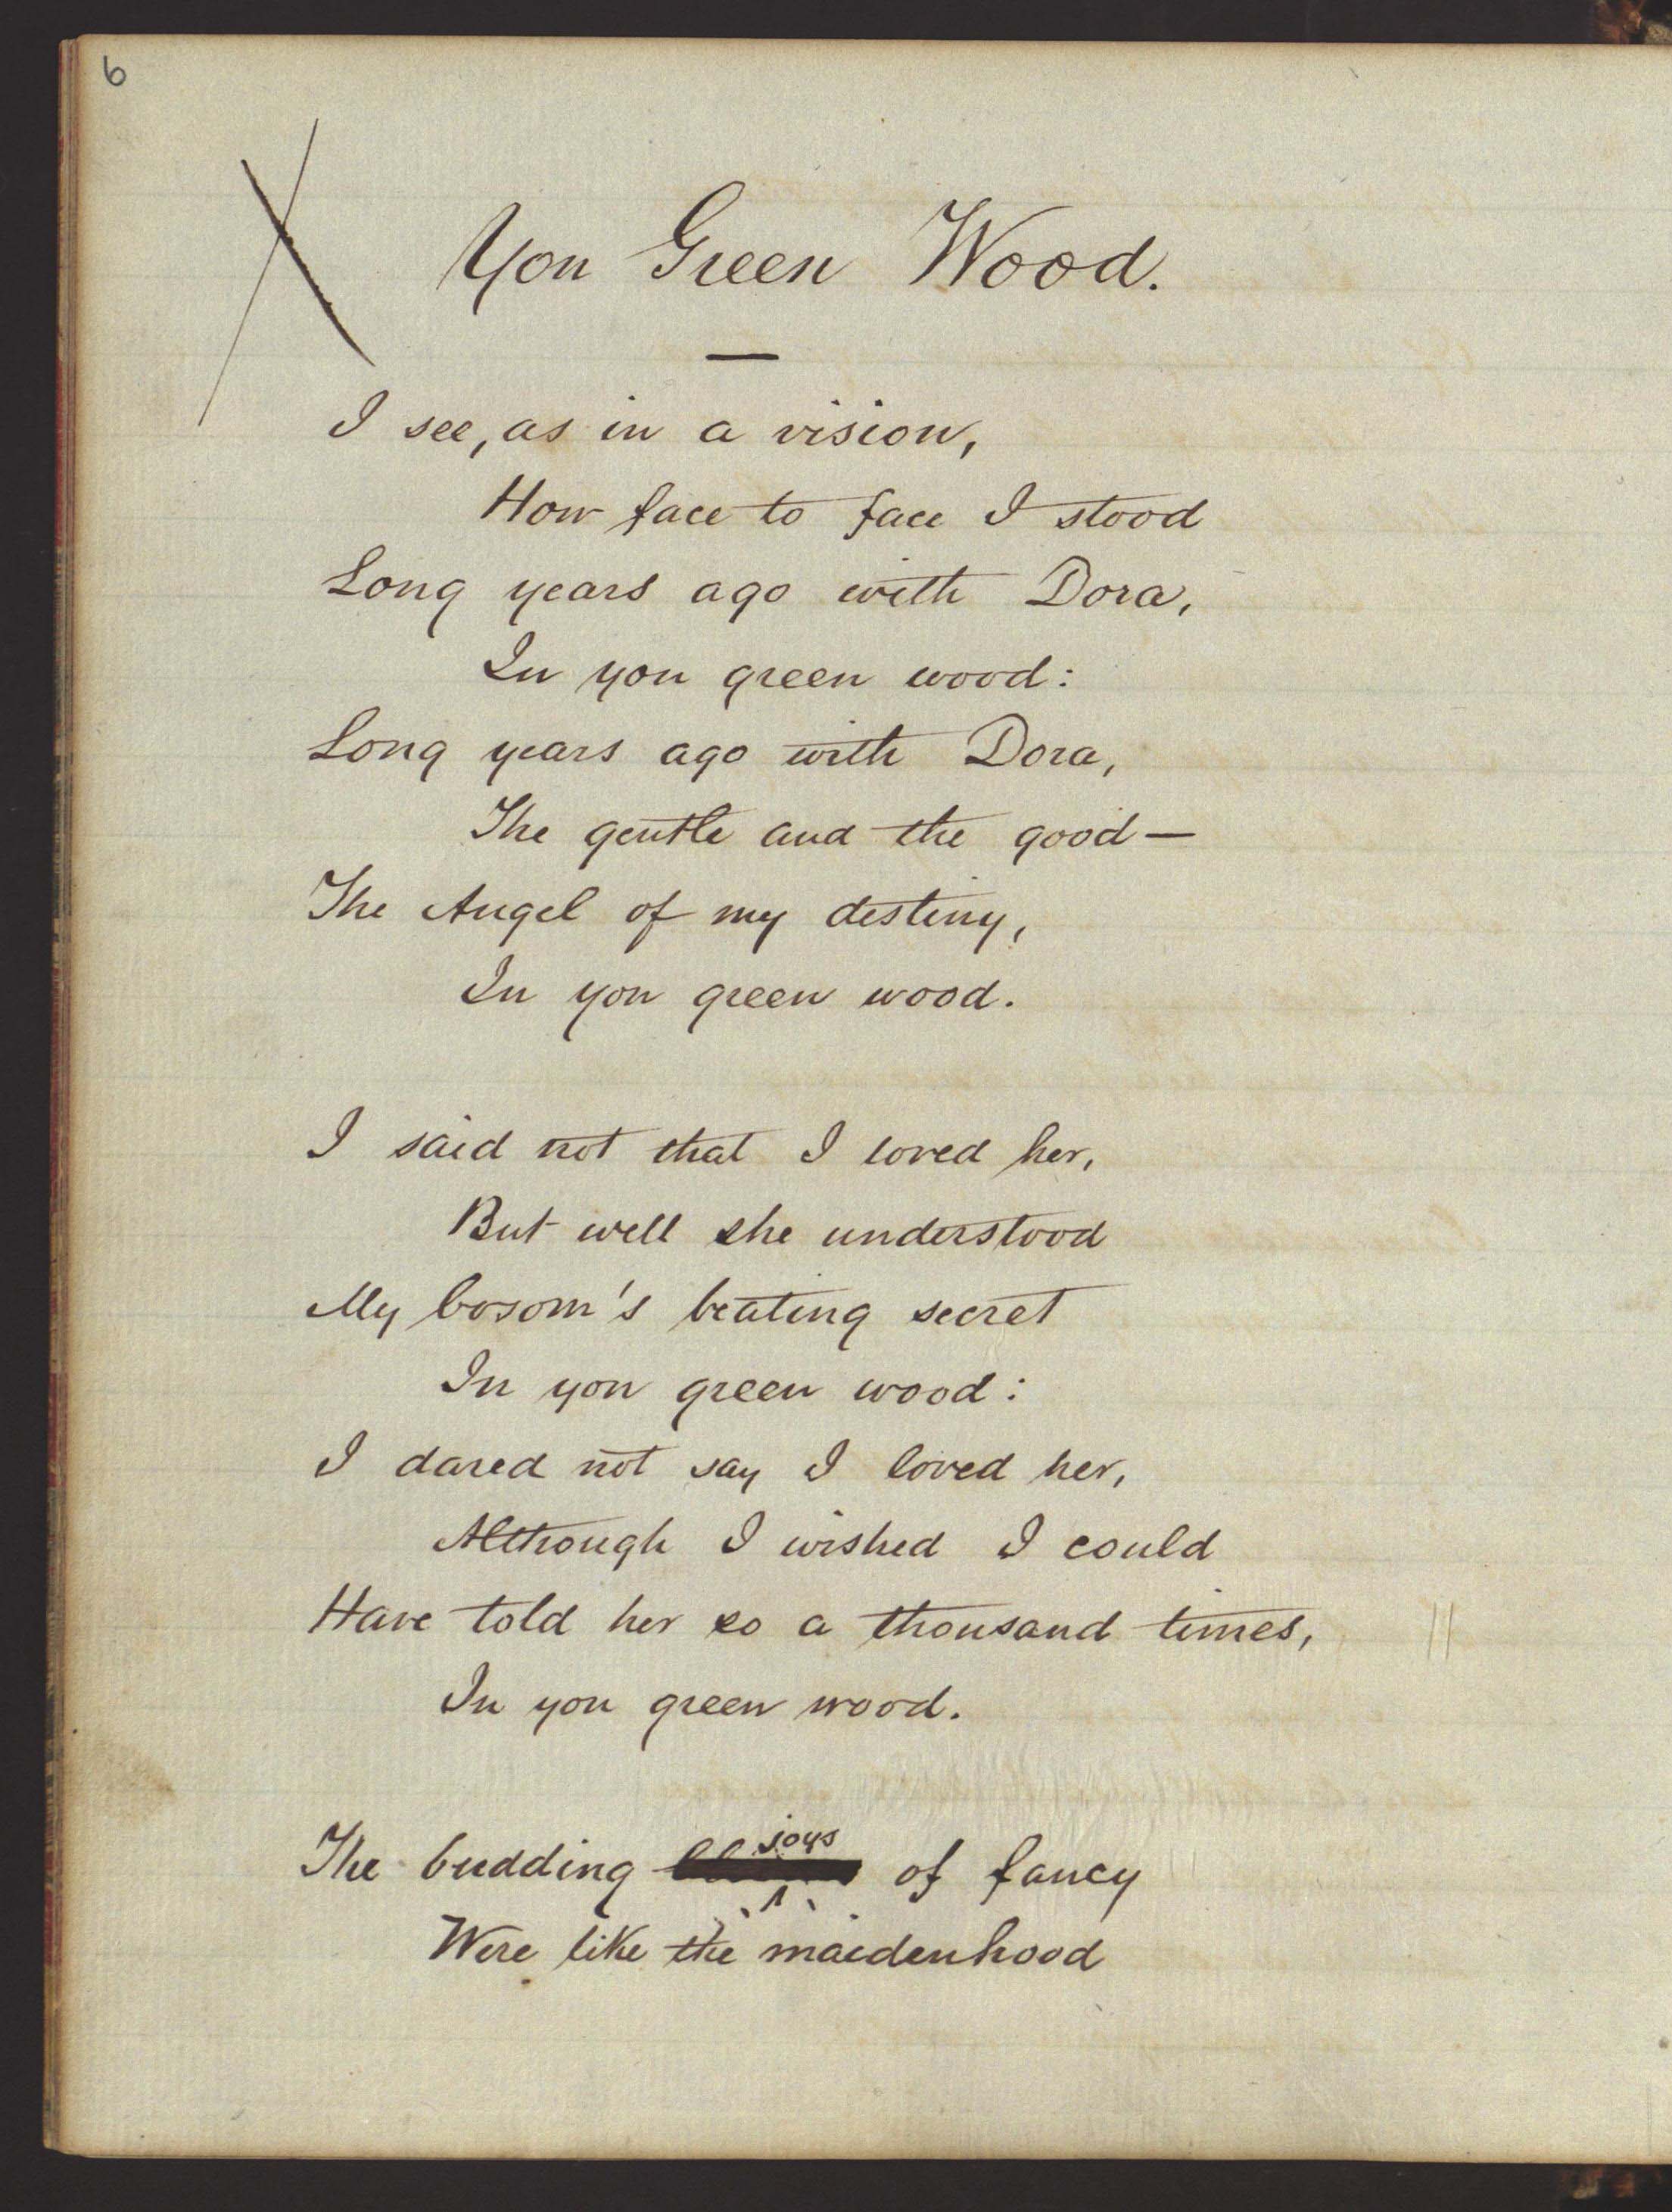 6
Yon Green Wood.
I see, as in a vision,
How face to face I stood
Long years ago with Dora,
In yon green wood:
Long years ago with Dora,
The gentle and the good—
The Angel of my destiny,
In yon green wood.
I said not that I loved her,
But well she understood
My bosom's beating secret
In yon green wood:
I dared not say I loved her,
Although I wished I could
Have told her so a thousand times,
In yon green wood.
joys
The budding of fancy
Were like the maidenhood